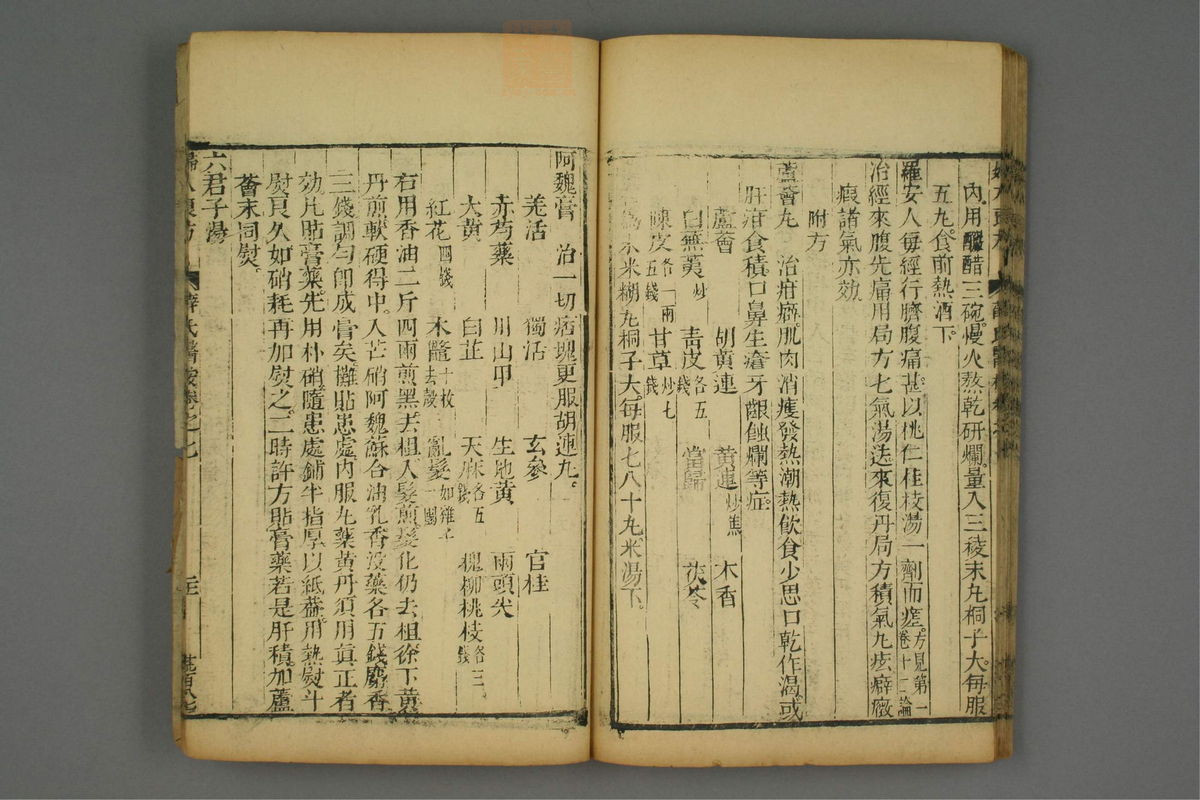 內用醲醋三碗慢火熬乾研爛量入三稜末丸桐子大每服
五丸食前熱酒下
羅安人每經行臍腹痛甚以桃仁桂枝湯一劑而瘥方見第一卷十二論
治經來腹先痛用局方七氣湯送來復丹局方積氣丸痃癖癥
瘕諸氣亦効
附方
蘆薈丸 治疳癖肌肉消瘦發熱潮熱飲食少思口乾作渴或
肝疳食積口鼻生瘡牙齦蝕爛等症
蘆薈 胡黃連 黃連炒焦 木香
白蕪荑炒 青皮各五錢 當歸 茯苓
陳皮各一兩五錢 甘草炒七錢
為末米糊丸桐子大每服七八十丸米湯下
阿魏膏 治一切痞塊更服胡連丸
羌活 獨活 玄參 官桂
赤芍藥 川山甲 生地黃 兩頭尖
大黃 白芷 天麻各五錢 槐柳桃枝各三錢
紅花四錢 木鱉十枚去殼 亂髮如雞子一團
右用香油二斤四兩煎黑去柤入髮煎髮化仍去柤徐下黃
丹煎軟硬得中入芒硝阿魏蘇合油乳香沒藥各五錢麝香
三錢調勻即成膏矣攤貼患處內服丸藥黃丹須用真正者
効凡貼膏藥先用朴硝隨患處鋪半指厚以紙葢用熱熨斗
熨良久如硝耗再加熨之二時許方貼膏藥若是肝積加蘆
薈末同熨
六君子湯
婦人良方 薛氏醫按卷之七